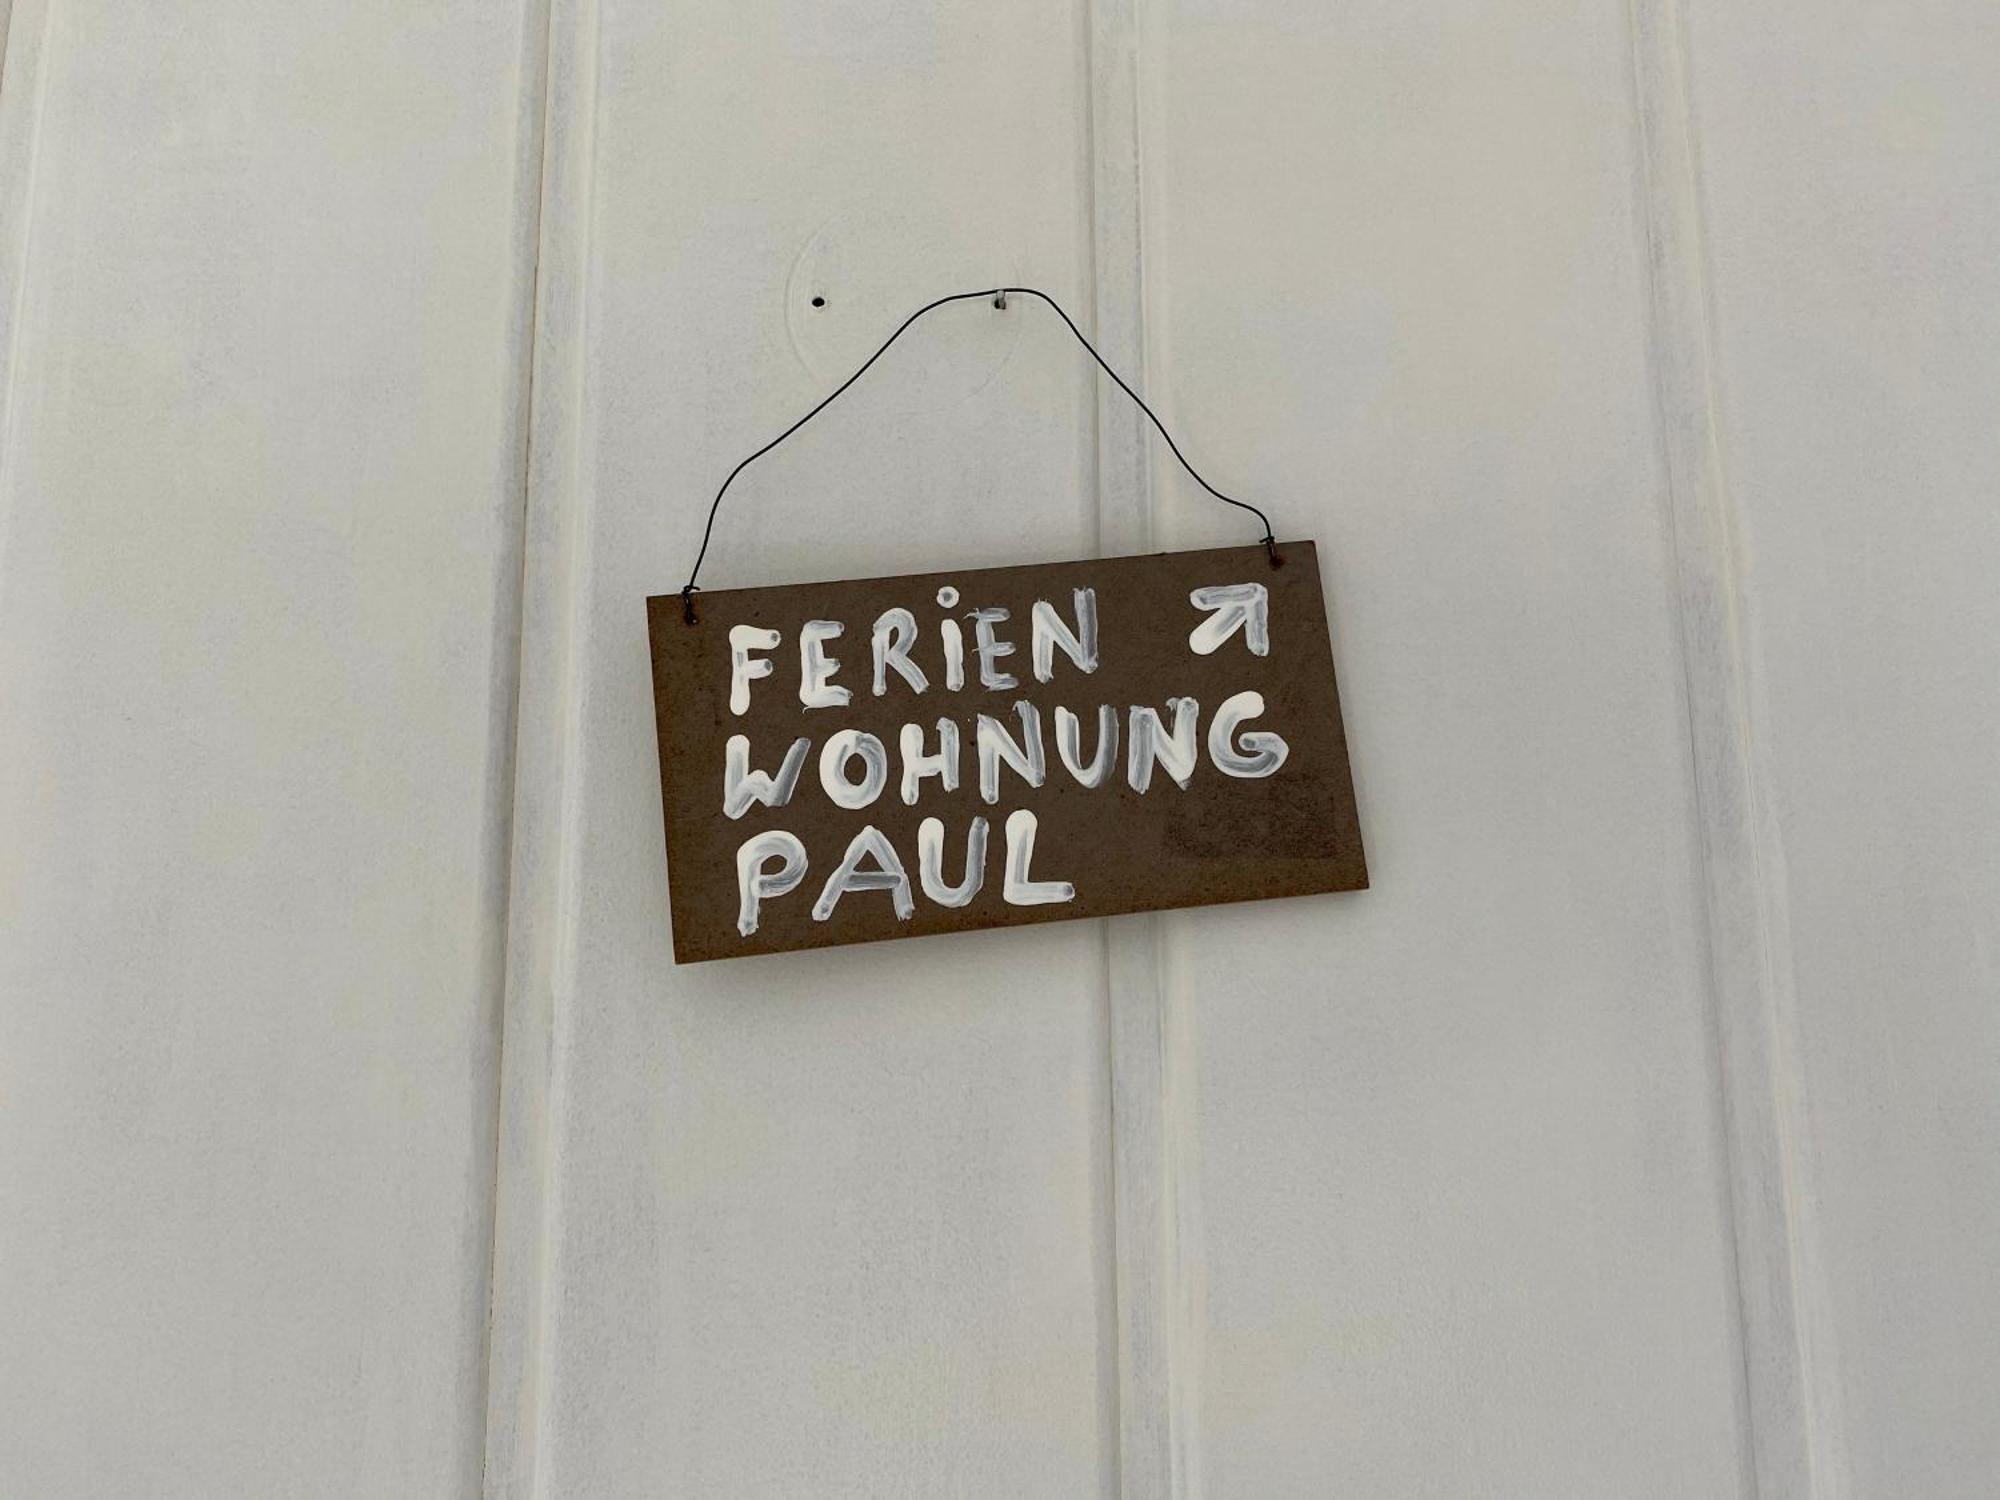 FERiEN ↗
WOHNUNG
PAUL